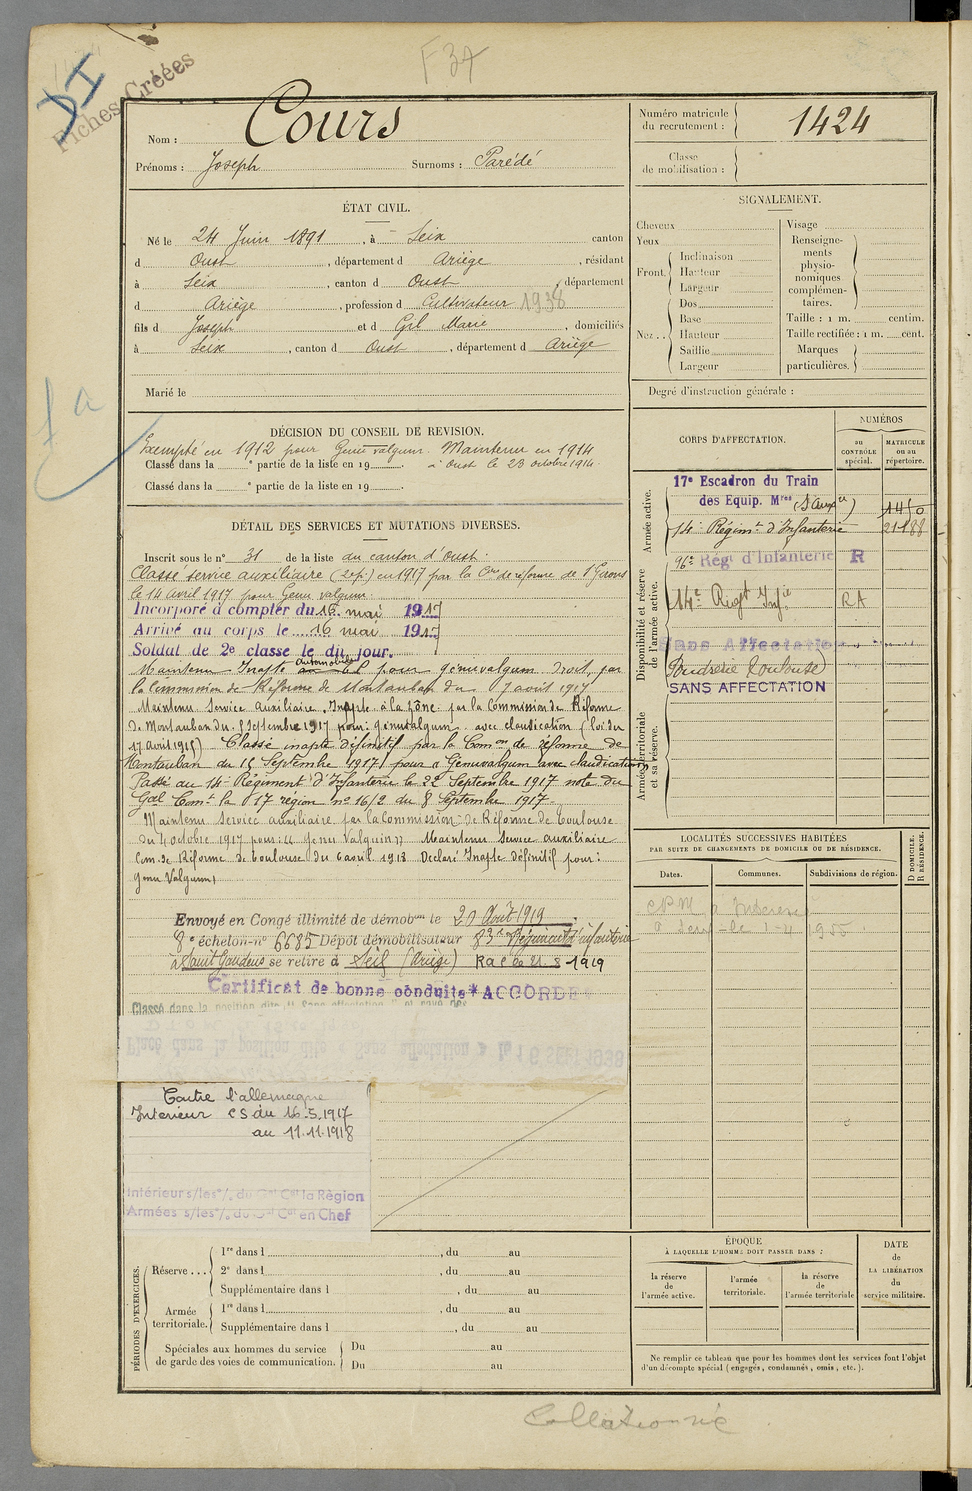 F 37
DI
Fiches Créées
Nom : Cours
Prénoms : Joseph Surnoms : Parédé
Numéro matricule du recrutement : 1424
Classe de mobilisation :
ÉTAT CIVIL.
Né le 24 Juin 1891, à Seix canton
d Oust, département d Ariège, résidant
à Seix, canton d Oust, département
d Ariège, profession d Cultivateur 1938
fils d Joseph et d Gil Marie, domiciliés
à Seix, canton d Oust, département d Ariège
Marié le
SIGNALEMENT.
Cheveux
Yeux
Front. Inclinaison
Hauteur
Largeur
Nez.. Dos
Base
Hauteur
Saillie
Largeur
Visage
Renseignements physionomiques complémentaires.
Taille : 1 m. centim.
Taille rectifiée : 1 m. cent.
Marques particulières.
Degré d'instruction générale :
DÉCISION DU CONSEIL DE REVISION.
Exempté en 1912 pour Genu valgum. Maintenu en 1914
Classé dans la e partie de la liste en 19 . à Oust le 23 octobre 1914.
Classé dans la e partie de la liste en 19 .
DÉTAIL DES SERVICES ET MUTATIONS DIVERSES.
Inscrit sous le n° 31 de la liste du canton d'Oust.
Classé service auxiliaire en 1917 par la Con de réforme de St Girons
le 14 avril 1917 pour Genu valgum.
Incorporé à compter du 16 mai 1917
Arrivé au corps le 16 mai 1917
Soldat de 2e classe le dit jour.
Maintenu Inapte automobile pour génuvalgum. Droit, par
la Commission de Réforme de Montauban du 7 août 1917
Maintenu Service Auxiliaire. Inapte à la Zône par la Commission de Réforme
de Montauban du 8 Septembre 1917 pour : genuvalgum avec claudication (loi du
17 avril 1915) Classé inapte définitif par la Comon de réforme de
Montauban du 15 Septembre 1917 pour Génuvalgum avec claudication
Passé au 14e Régiment d'Infanterie le 22 Septembre 1917 note du
Gal Comt la 17 région n° 16/2 du 8 Septembre 1917.
Maintenu Service auxiliaire par la Commission de Réforme de Toulouse
du 4 octobre 1917 pour : " Genu Valguin " Maintenu Service auxiliaire
Com. de Réforme de Toulouse du 6 avril 1918 Declaré Inapte Définitif pour :
Genu Valgum
Envoyé en Congé illimité de démobon le 20 Août 1919
8e échelon-n° 6685 Dépôt démobilisateur 83e Régiment d'infanterie
à Saint Gaudens se retire à Seix (Ariège) 1919
Certificat de bonne conduite * ACCORDÉ
Classé dans la position dite " Sans affectation " et rayé des
Placé dans la position dite « Sans affectation » le 16 SEPT 1938
Contre l'allemagne
Interieur CS du 16.5.1917
au 11.11.1918
Intérieur s/les o/. du Gal Ct la Règion
Armées s/les o/. du Gal Ct en Chef
CORPS D'AFFECTATION.
NUMÉROS
au CONTRÔLE spécial.
MATRICULE ou au répertoire.
Armée active.
17e Escadron du Train
des Equip. Mres 1450
14e Régimt d'Infanterie 21188
Disponibilité et réserve de l'armée active.
96e Régt d'Infanterie R
14e Regt Infie RA
Sans Affectation
Poudrerie Toulouse
SANS AFFECTATION
Armée territoriale et sa réserve.
LOCALITÉS SUCCESSIVES HABITÉES
PAR SUITE DE CHANGEMENTS DE DOMICILE OU DE RÉSIDENCE.
Dates.
Communes.
Subdivisions de région.
D DOMICILE. R RÉSIDENCE.
PÉRIODES D'EXERCICES.
Réserve ... 1re dans l , du au
2e dans l , du au
Supplémentaire dans l , du au
Armée territoriale. 1re dans l , du au
Supplémentaire dans l , du au
Spéciales aux hommes du service de garde des voies de communication. Du au
Du au
ÉPOQUE
À LAQUELLE L'HOMME DOIT PASSER DANS :
la réserve de l'armée active.
l'armée territoriale.
la réserve de l'armée territoriale
DATE de LA LIBÉRATION du service militaire.
Ne remplir ce tableau que pour les hommes dont les services font l'objet
d'un décompte spécial (engagés, condamnés, omis, etc.).
Collationné